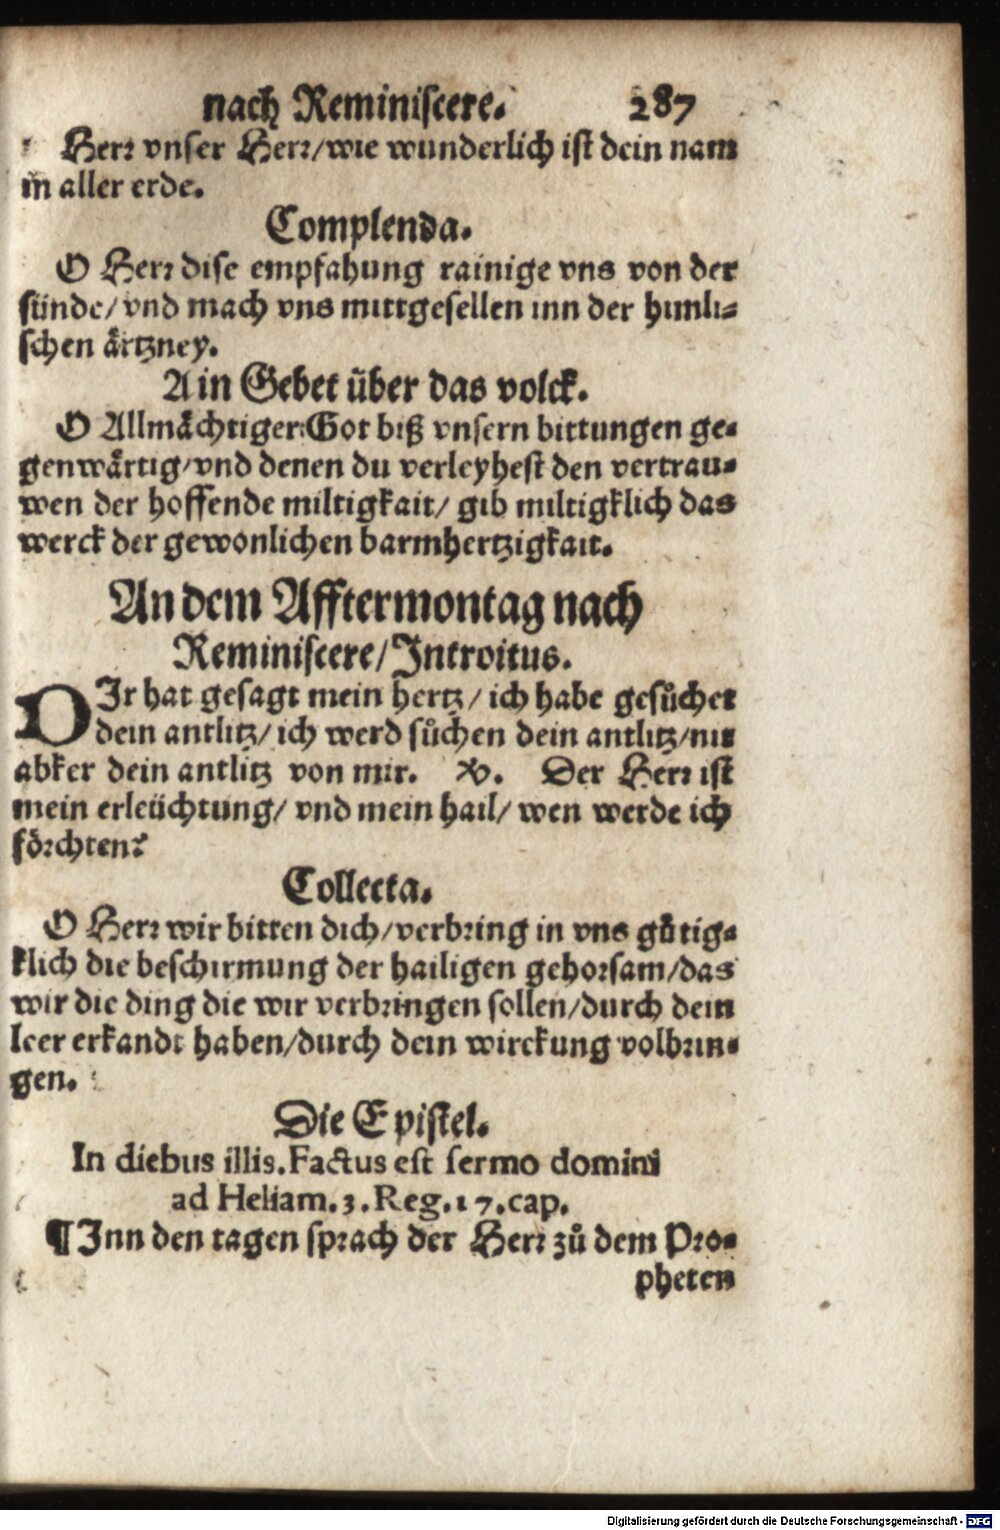 nach Reminiscere. 287
Herr vnser Herr/wie wunderlich ist dein nam
in aller erde.
Complenda.
O Herr dise empfahung rainige vns von der
sünde/vnd mach vns mittgesellen inn der himli⸗
schen ärtzney.
Ain Gebet über das volck.
O Allmächtiger Got biß vnsern bittungen ge⸗
genwärtig/vnd denen du verleyhest den vertrau⸗
wen der hoffende miltigkait/ gib miltigklich das
werck der gewonlichen barmhertzigkait.
An dem Afftermontag nach
Reminiscere/Introitus.
DIr hat gesagt mein hertz/ ich habe gesůchet
dein antlitz/ ich werd sůchen dein antlitz/nit
abker dein antlitz von mir. V. Der Herr ist
mein erleüchtung/ vnd mein hail/ wen werde ich
förchten?
Collecta.
O Herr wir bitten dich/verbring in vns gůtig⸗
klich die beschirmung der hailigen gehorsam/das
wir die ding die wir verbringen sollen/durch dein
leer erkandt haben/durch dein wirckung volbrin⸗
gen.
Die Epistel.
In diebus illis. Factus est sermo domini
ad Heliam. 3. Reg. 17. cap.
¶ Inn den tagen sprach der Herr zů dem Pro⸗
pheten
Digitalisierung gefördert durch die Deutsche Forschungsgemeinschaft - DFG